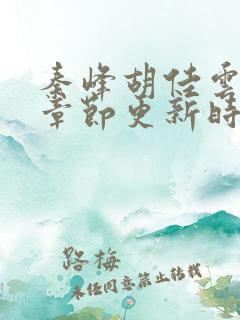 秦峰胡佳雲
章節更新時
路梅
未经同意禁止转载